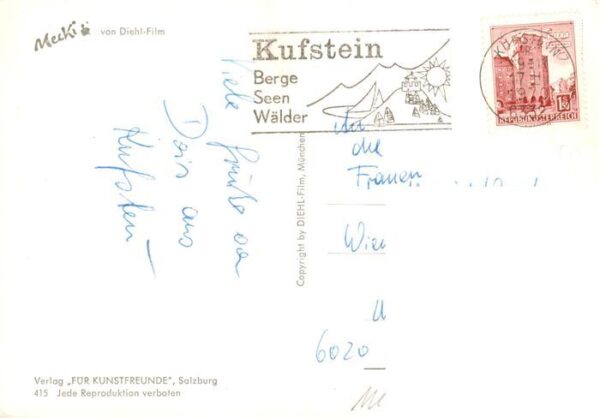 Mecki von Diehl-Film
Kufstein
Berge
Seen
Wälder
KUFSTEIN
REPUBLIK ÖSTERREICH
Viele Grüße von
aus
Kufstein
Copyright by DIEHL-Film, München
An
die
Frauen
Wien
6020
Verlag „FÜR KUNSTFREUNDE", Salzburg
415 Jede Reproduktion verboten